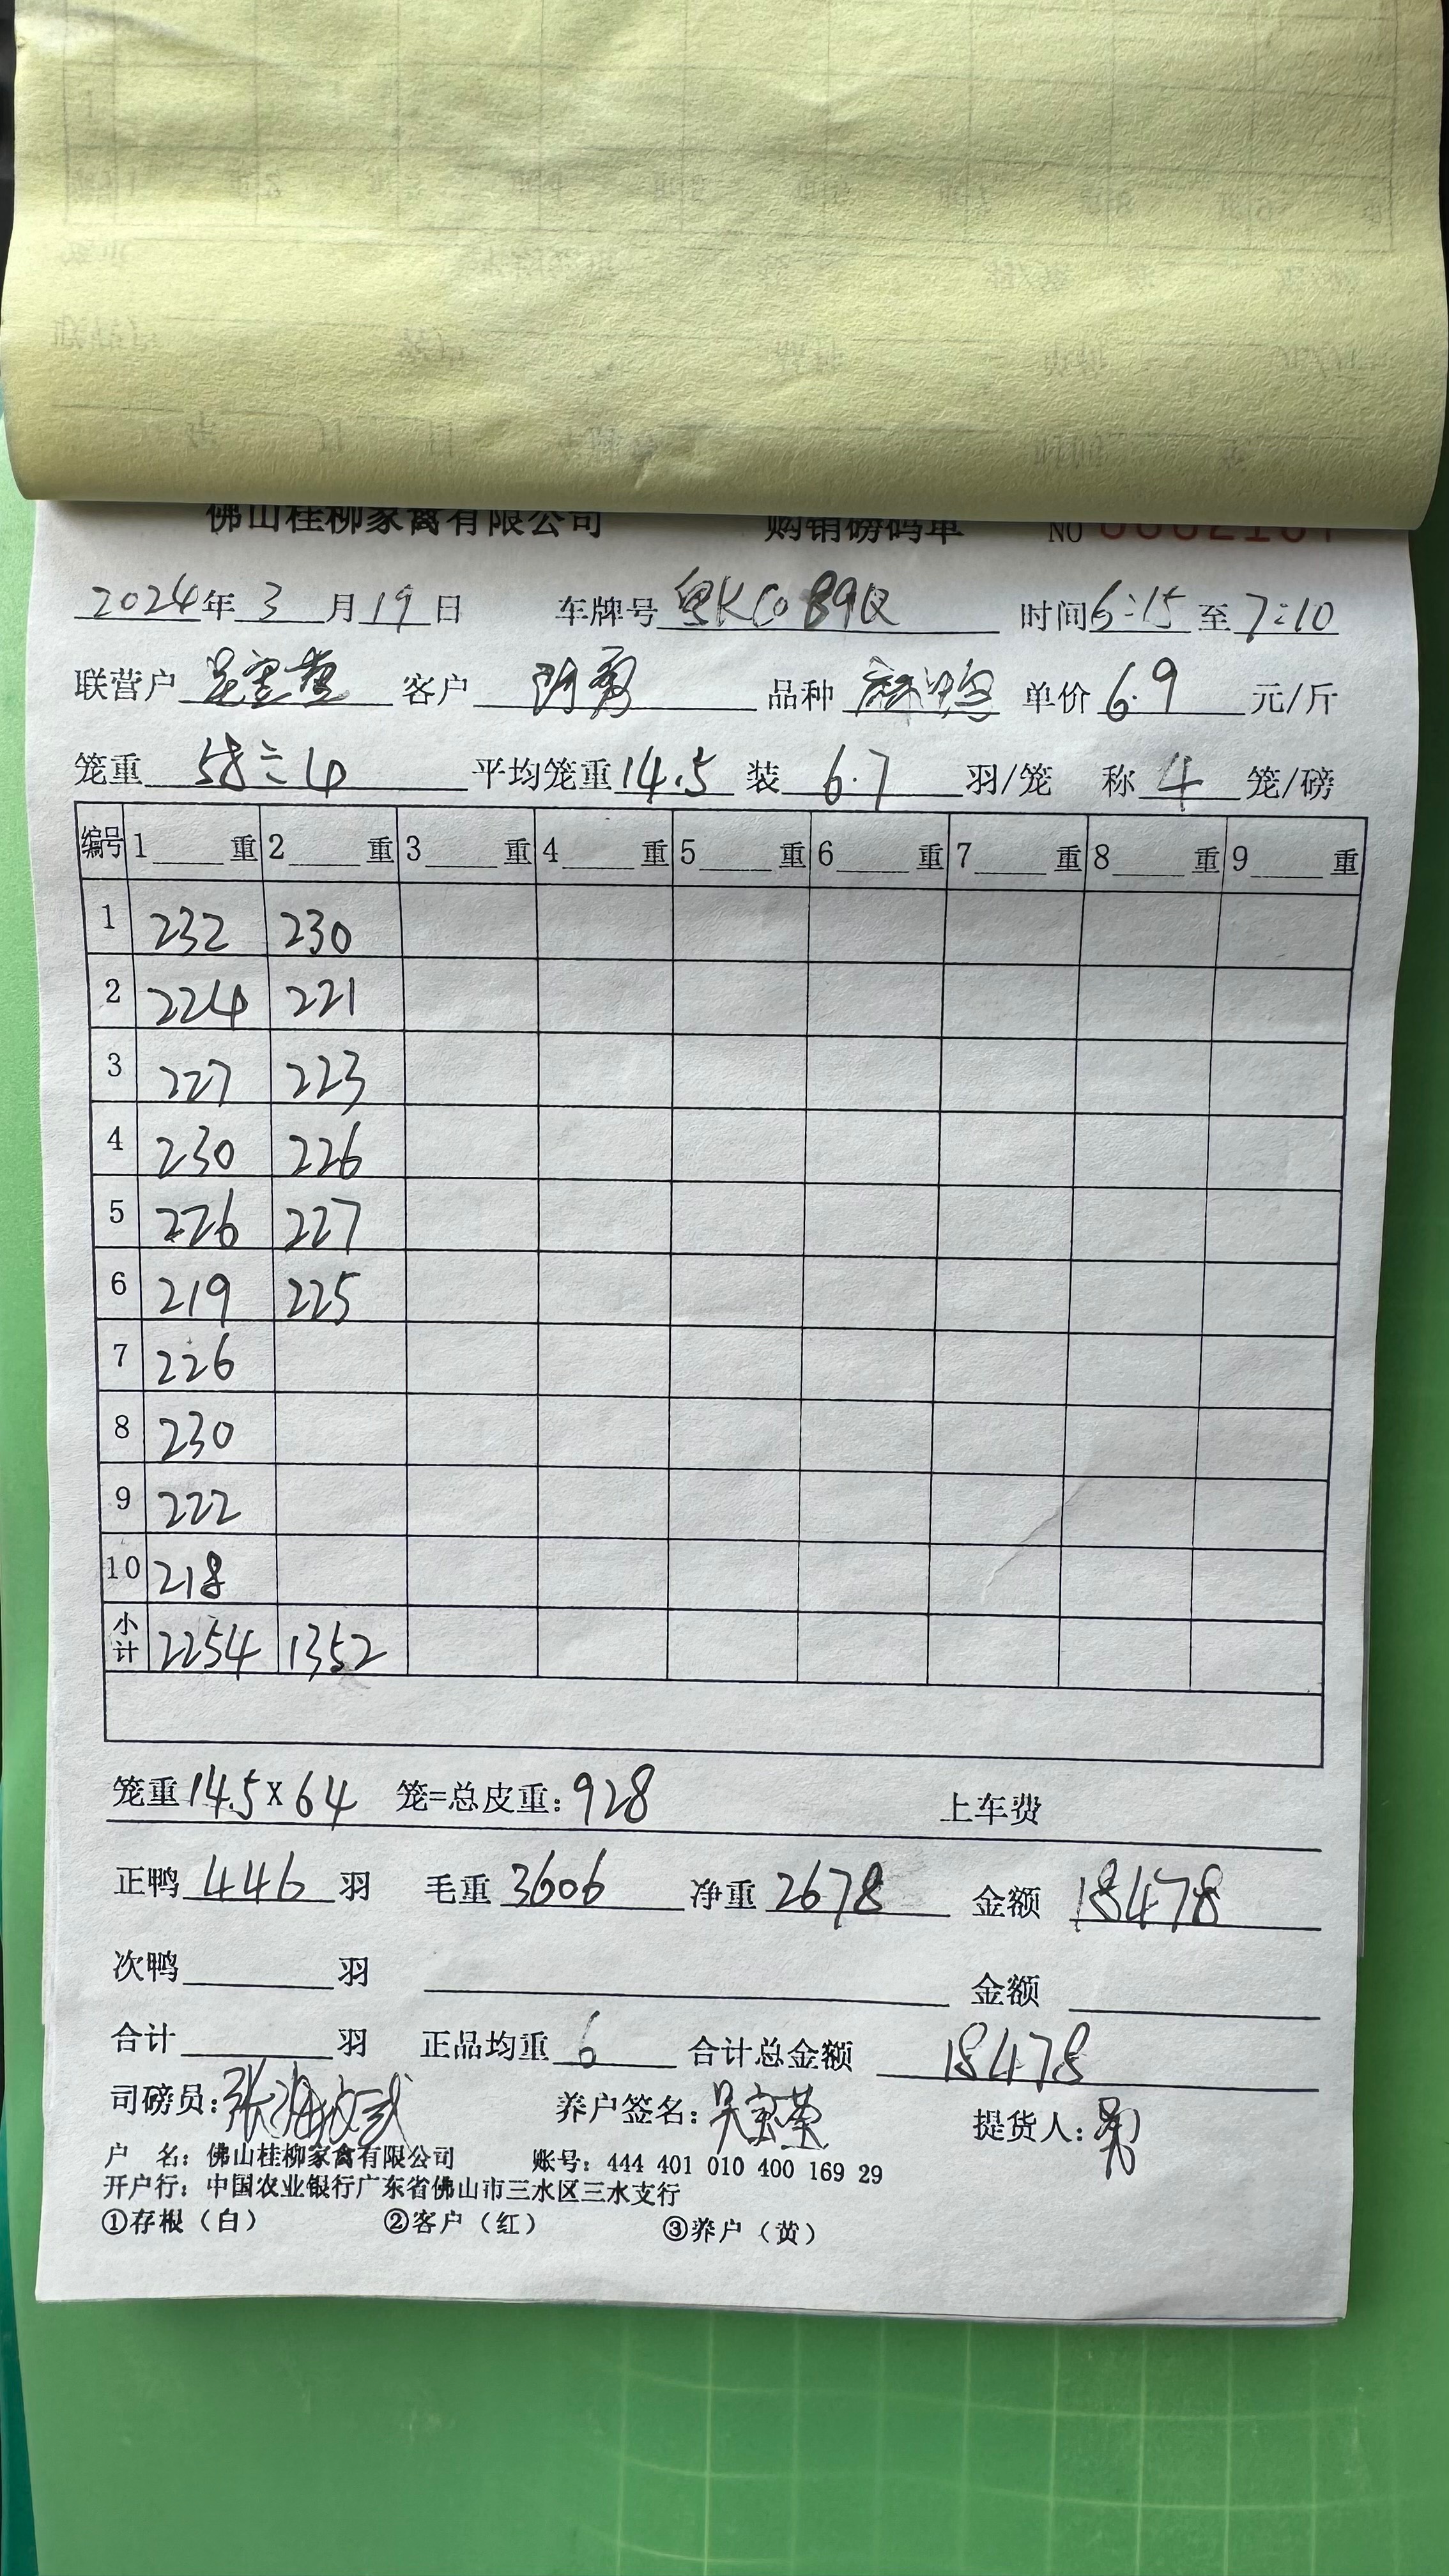 佛山桂柳家禽有限公司 购销磅码单 NO
2024年 3 月 19 日 车牌号 粤KC089Q 时间 6:15 至 7:10
联营户 吴宝莹 客户 品种 麻鸭 单价 6.9 元/斤
笼重 58÷4 平均笼重 14.5 装 6.7 羽/笼 称 4 笼/磅
编号 1 重 2 重 3 重 4 重 5 重 6 重 7 重 8 重 9 重
1 232 230
2 224 221
3 227 223
4 230 226
5 226 227
6 219 225
7 226
8 230
9 222
10 218
小计 2254 1352
笼重 14.5 X 64 笼=总皮重: 928 上车费
正鸭 446 羽 毛重 3606 净重 2678 金额 18478
次鸭 羽 金额
合计 羽 正品均重 6 合计总金额 18478
司磅员: 养户签名: 吴宝莹 提货人:
户 名: 佛山桂柳家禽有限公司 账号: 444 401 010 400 169 29
开户行: 中国农业银行广东省佛山市三水区三水支行
①存根（白） ②客户（红） ③养户（黄）